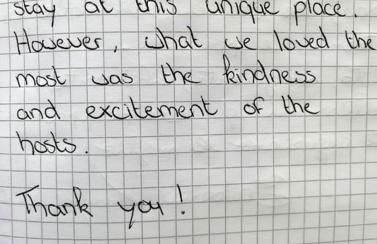 stay at this unique place.
However, what we loved the
most was the kindness
and excitement of the
hosts.
Thank you!